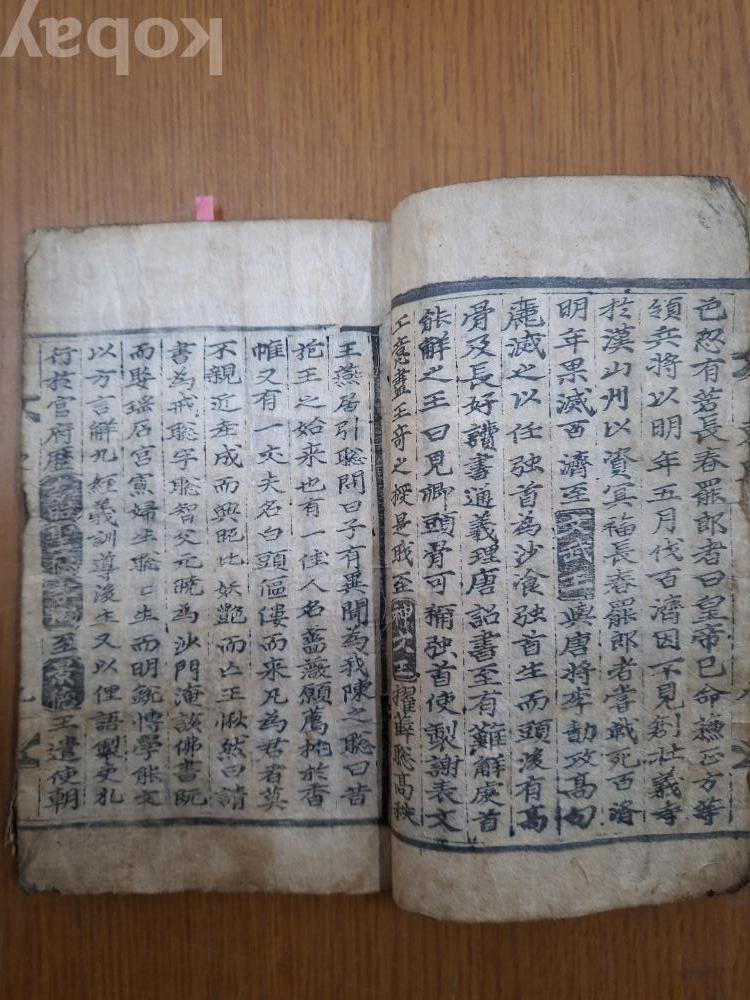 kobay
色怒有若長春罷郎者曰皇帝已命蘇正方等
領兵將以明年五月伐百濟因不見創社義寺
於漢山州以資冥福長春罷郎者嘗戰死百濟
明年果滅百濟至文武王與唐將李勣攻高句
麗滅之以任強首為沙飡強首生而頭後有高
骨及長好讀書通義理唐詔書至有難解處首
能解之王曰見卿頭骨可稱強首使製謝表文
工意盡王奇之授是職至神文王擢薛聰高秩
王燕居引聰問曰子有異聞為我陳之聰曰昔
花王之始来也有一佳人名薔薇願薦枕於香
帷又有一丈夫名白頭傴僂而来凡為君者莫
不親近老成而興昵比妖艶而亡王愀然曰請
書為戒聰字聰智父元曉為沙門淹該佛書既
而娶瑤石宮寡婦生聰聰生而明銳博學能文
以方言解九經義訓導後生又以俚語製吏札
行於官府歷 至景德王遣使朝